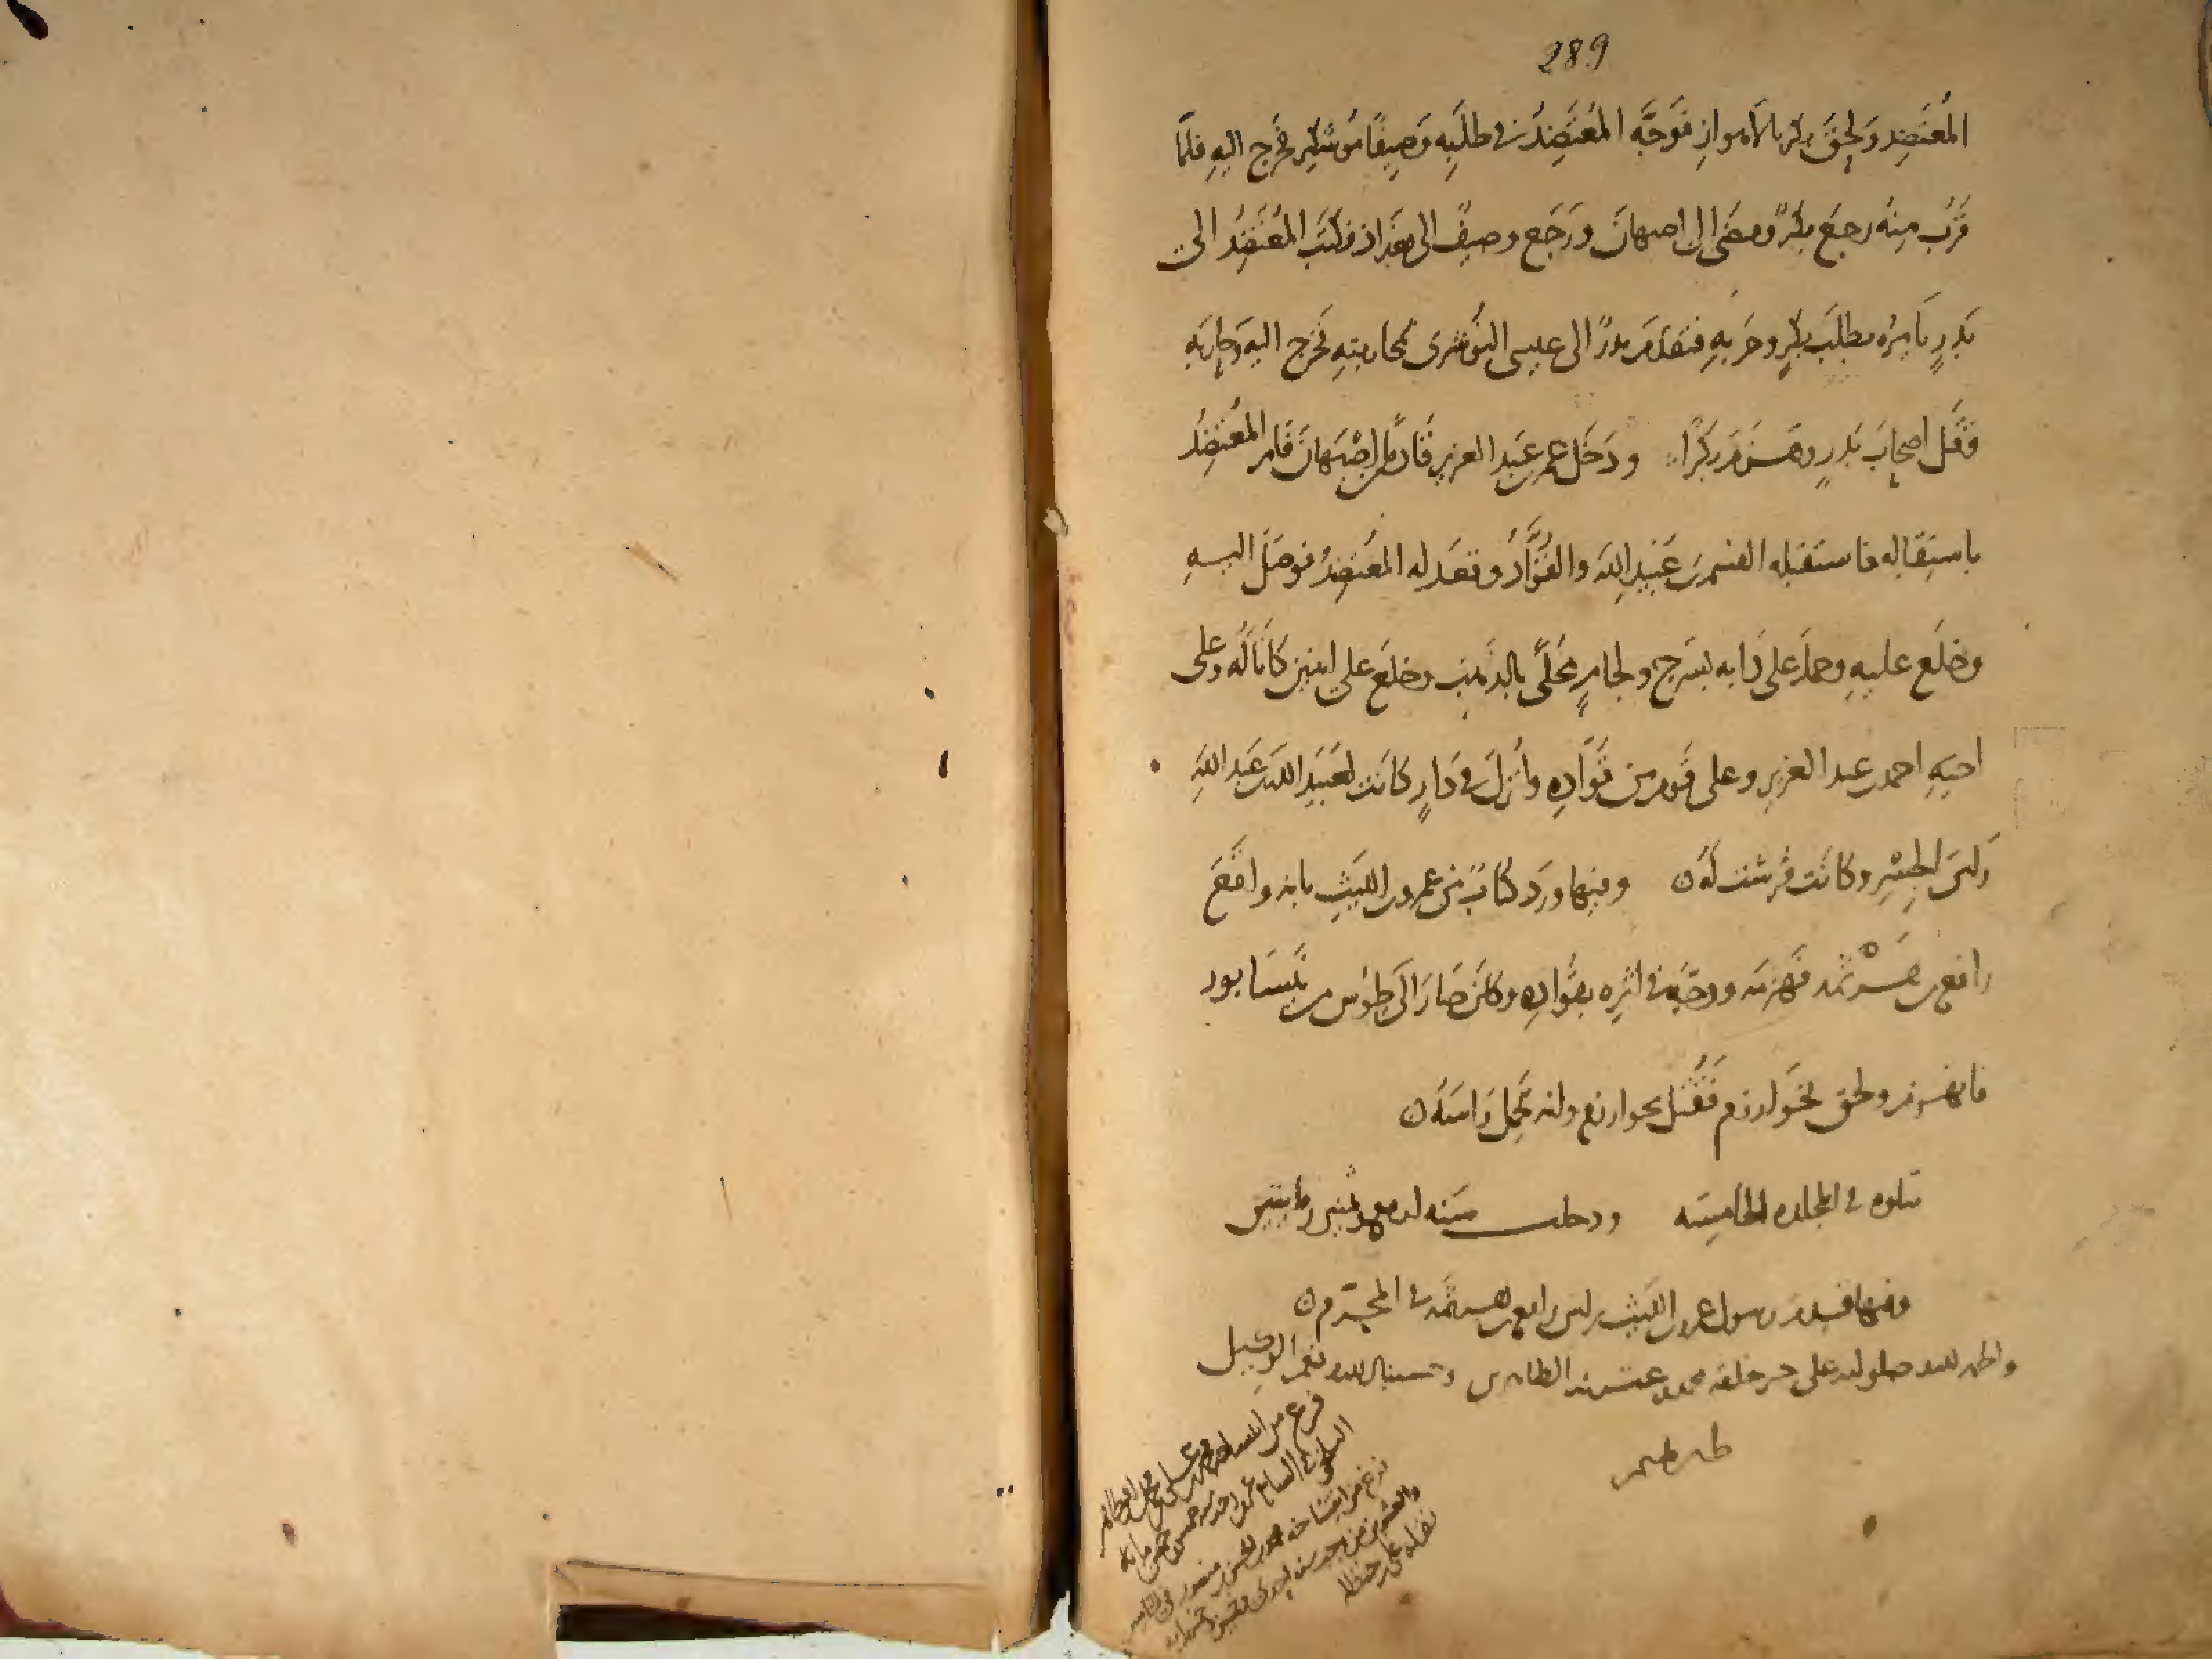 289
المُعتَضِد ولَحِقَ بكر بالأهوازِ فَوَجَّه المُعتَضِدُ في طلَبِه وَصِيفًا مُوشكير فخرج اليهِ فلمّا
قَرُبَ مِنهُ رجعَ بكرٌ ومضَى الى اصبهانَ ورَجَع وصيفٌ الى بغدَاذ فكتَبَ المُعتَضِدُ الى
بَدرٍ يَامرُه بطلَبِ بكرٍ وحَربِهِ فتقدَّمَ بدرٌ الى عيسى النُوشَرى بمحاربتِهِ فخَرج اليه وَحَارَبَه
فقَتَل اصحابَ بَدرٍ وهَزمَ بَكرًا ودَخَل عمر بن عبد العزيز قادِمًا من اصْبَهانَ فأمر المُعتَضِدُ
باستِقباله فاستقبله القسم بن عُبَيدِ اللهِ والقُوَّادُ وقعَد له المعتَضِدُ فوصَلَ اليهِ
وخلَع عليهِ وحمله على دَابه بسَرج ولجامٍ مُحَلّىً بالذهب وخلَعَ على ابنَين كانَا لَهُ وعلى
اخيهِ احمد بن عبد العزيز وعلى قَوم من قُوّادِه وأُنزِلَ في دَارٍ كانت لعُبَيدِ الله بن عَبدِ اللهِ
رَاسَ الجِسْرِ وكانَت فُرشَت لَهُ وفيها ورَد كتابٌ من عمرو بن الليثِ بانه واقَعَ
رافع بن هَرْثَمه فهَزمَه ووجّهَ في اثرِه بقُوّادِه وكانَ صَارَ الَى طُوس من نَيسَابور
فانهزم ولحق بخوارزم فَقُتِل بخوارزم وانه يحمل رَاسَهُ
تتلوه في المجلده الخامِسَه ودخلت سنه اربع وثمنين ومايتين
وفيها قدم رسول عمرو بن الليث براس رافع بن هرثمه في المحرّم
والحمد لله وصلواته على خير خلقه محمد وعترته الطاهرين وحسبنا الله ونعم الوكيل
فرغ من
فرغ من انتساخه